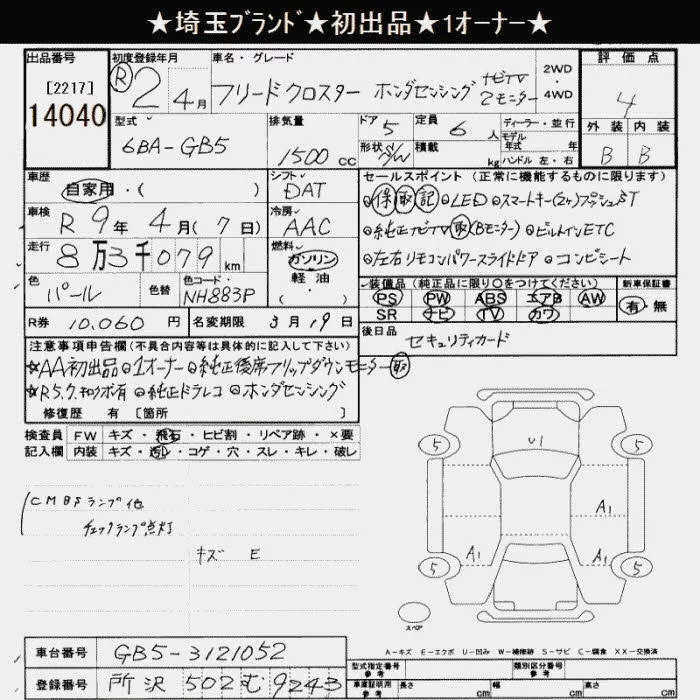 ★埼玉ﾌﾞﾗﾝﾄﾞ★初出品★1オーナー★
出品番号
[2217]
14040
初度登録年月
R 2年 4月
車名・グレード
フリードクロスター ホンダセンシング ナビTV 2モニター
2WD・4WD
評価点
4
外装 内装
B B
型式
6BA-GB5
排気量
1500 CC
ドア 5
形状 S/W
定員 6人
積載 kg
ディーラー・並行
モデル年式 年式
ハンドル 左・右
車歴
自家用・( )
シフト
DAT
車検
R 9年 4月(7日)
冷房
AAC
走行
8万3千079 km
燃料
ガソリン
軽油
( )
色
パール
色替
色コード
NH883P
R券 10.060円
名変期限 3月19日
セールスポイント (正常に機能するものに限ります)
◎保取記 ◎LED ◎スマートキー(2ケ)プシュST
◎純正ナビTV取(Bモニター) ◎ビルトインETC
◎左右リモコンパワースライドドア ◎コンビシート
装備品(純正品に限り○をつけてください)
PS PW ABS エアB AW
SR ナビ TV カワ
新車保証書
有・無
後日品
セキュリティカード
注意事項申告欄(不具合内容等は具体的に記入して下さい)
☆AA初出品 ◎1オーナー ◎純正後席フリップダウンモニター取
◎純正ドラレコ ◎ホンダセンシング
修復歴 有 [箇所 ]
検査員記入欄
FW キズ・飛石・ヒビ割・リペア跡・×要
内装 キズ・汚レ・コゲ・穴・スレ・キレ・破レ
CMBSランプ他
チェックランプ点灯
キズ E
U1
5 5
A1
A1 A1
5 5
スペア
A-キズ E-エクボ U-凹み W-補修跡 S-サビ C-腐食 XX-交換済
車台番号 GB5-3121052
登録番号 所沢 502 む 9243
型式指定番号 参考
類別区分番号 参考
車庫証明用 参考 長さ cm 幅 cm 高さ cm